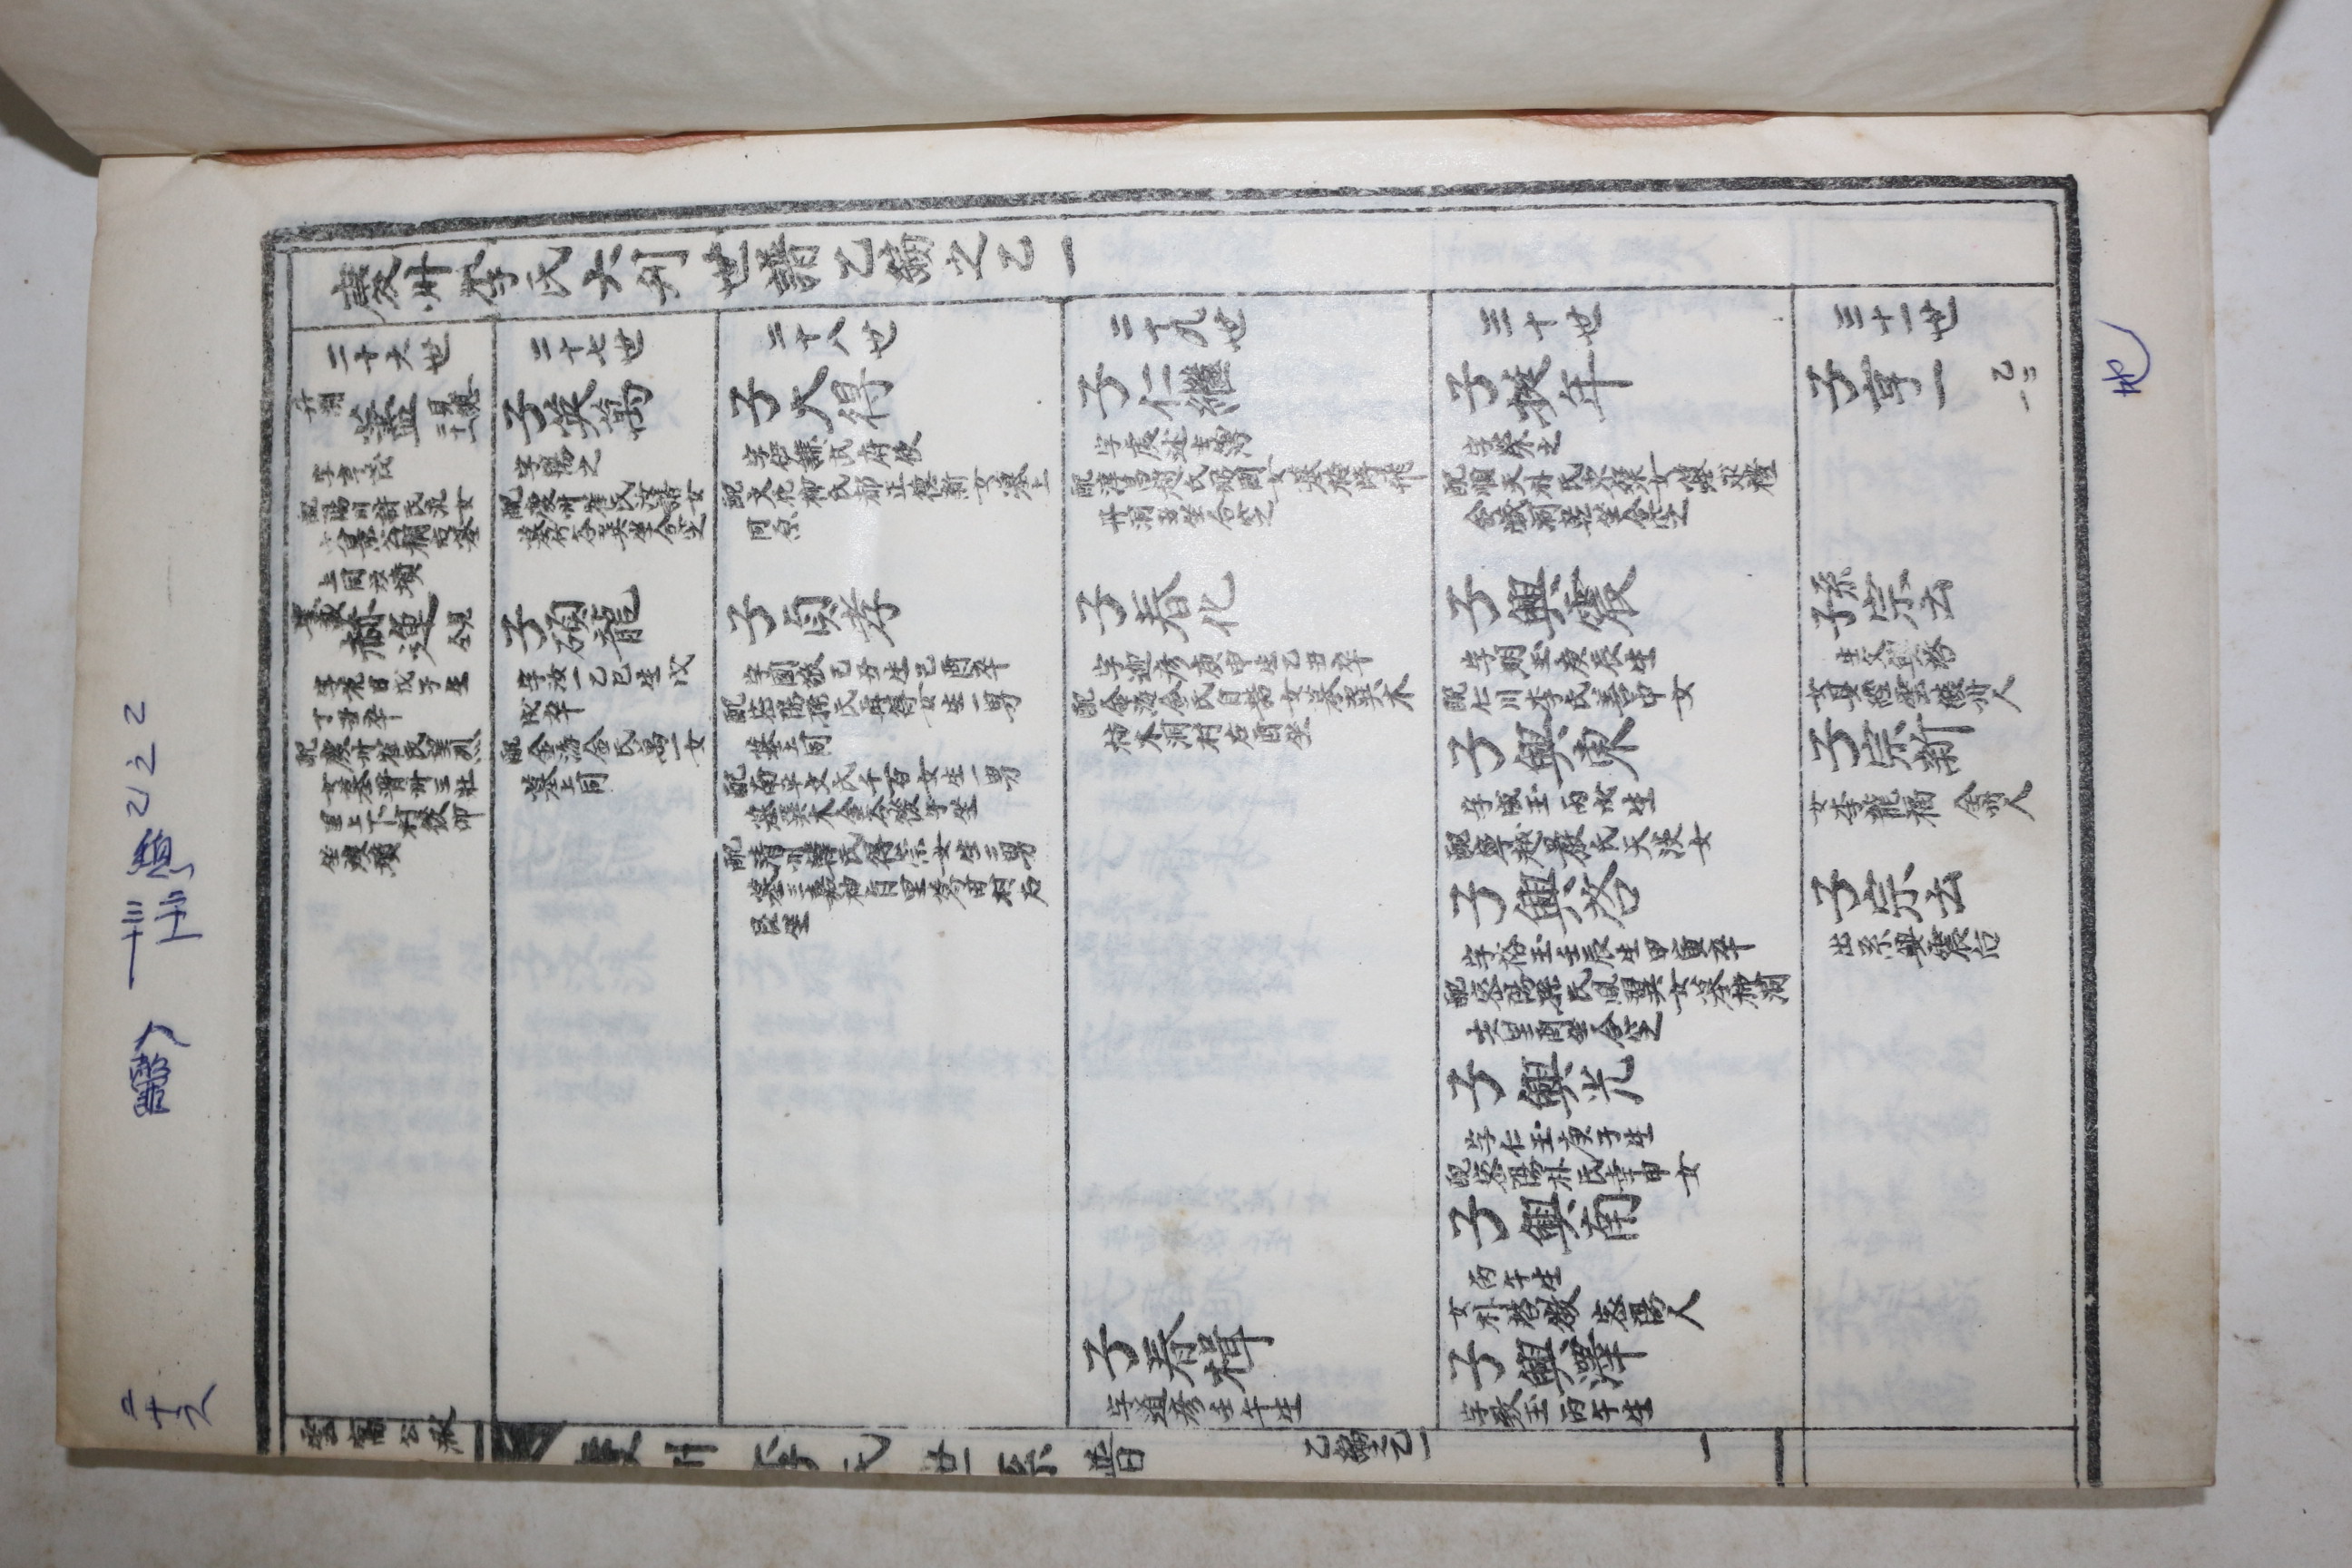 慶州李氏大刋世譜乙編之乙一
二十六世
丹溯
蓋
見總二十一
字亨茂
配陽川許氏女
上同茂墳
赫運
見
字花日戊子生
丁丑卒
配慶州崔氏望烈
女墓晋州三壯
里上下村後卯
坐雙墳
二十七世
子英萬
字陽之
配慶州崔氏汝諧女
墓竹谷巽坐合窆
子碩龍
字汝一乙巳生戊
戌卒
配金海金氏萬一女
墓上同
二十八世
子大得
字伊謙武府使
配文化柳氏都正德新女墓上
同原
子貞孝
字國敬己丑生己酉卒
配密陽孫氏再得女生一男
墓上同
配南平文氏千百女生一男
墓巽木金谷後午坐
配淸州韓氏得宗女生二男
墓三嘉神旨里葛田村右
艮坐
二十九世
子仁繼
字處述主簿
配淳昌趙氏弼國女墓
丹洞丑坐合窆
子春化
字迎彦庚申生乙丑卒
配金海金氏自諧女墓巽木
柿木洞村右酉坐
子春楫
字道彦壬午生
三十世
子挺年
字榮之
配順天朴氏東粲女墓
金藏洞艮坐合窆
子興震
字明玉庚辰生
配仁川李氏善中女
子興東
字成玉丙戌生
配寧越嚴氏天淡女
子興啓
字裕玉壬辰生甲寅卒
配密陽孫氏鳳翼女墓柿洞
大里酉坐合窆
子興光
字仁玉庚子生
配密陽朴氏幸申女
子興南
丙午生
女朴啓徵 密陽人
子興澤
字致玉丙午生
三十一世
子亨一
乙二
一
系子宗云
生父興啓
女具 雲綾州人
子宗新
女李龍福 全州人
子宗云
出系興震后
雲窩公派
慶州李氏世系譜
乙編之乙一
一
二十六
乙之乙
地